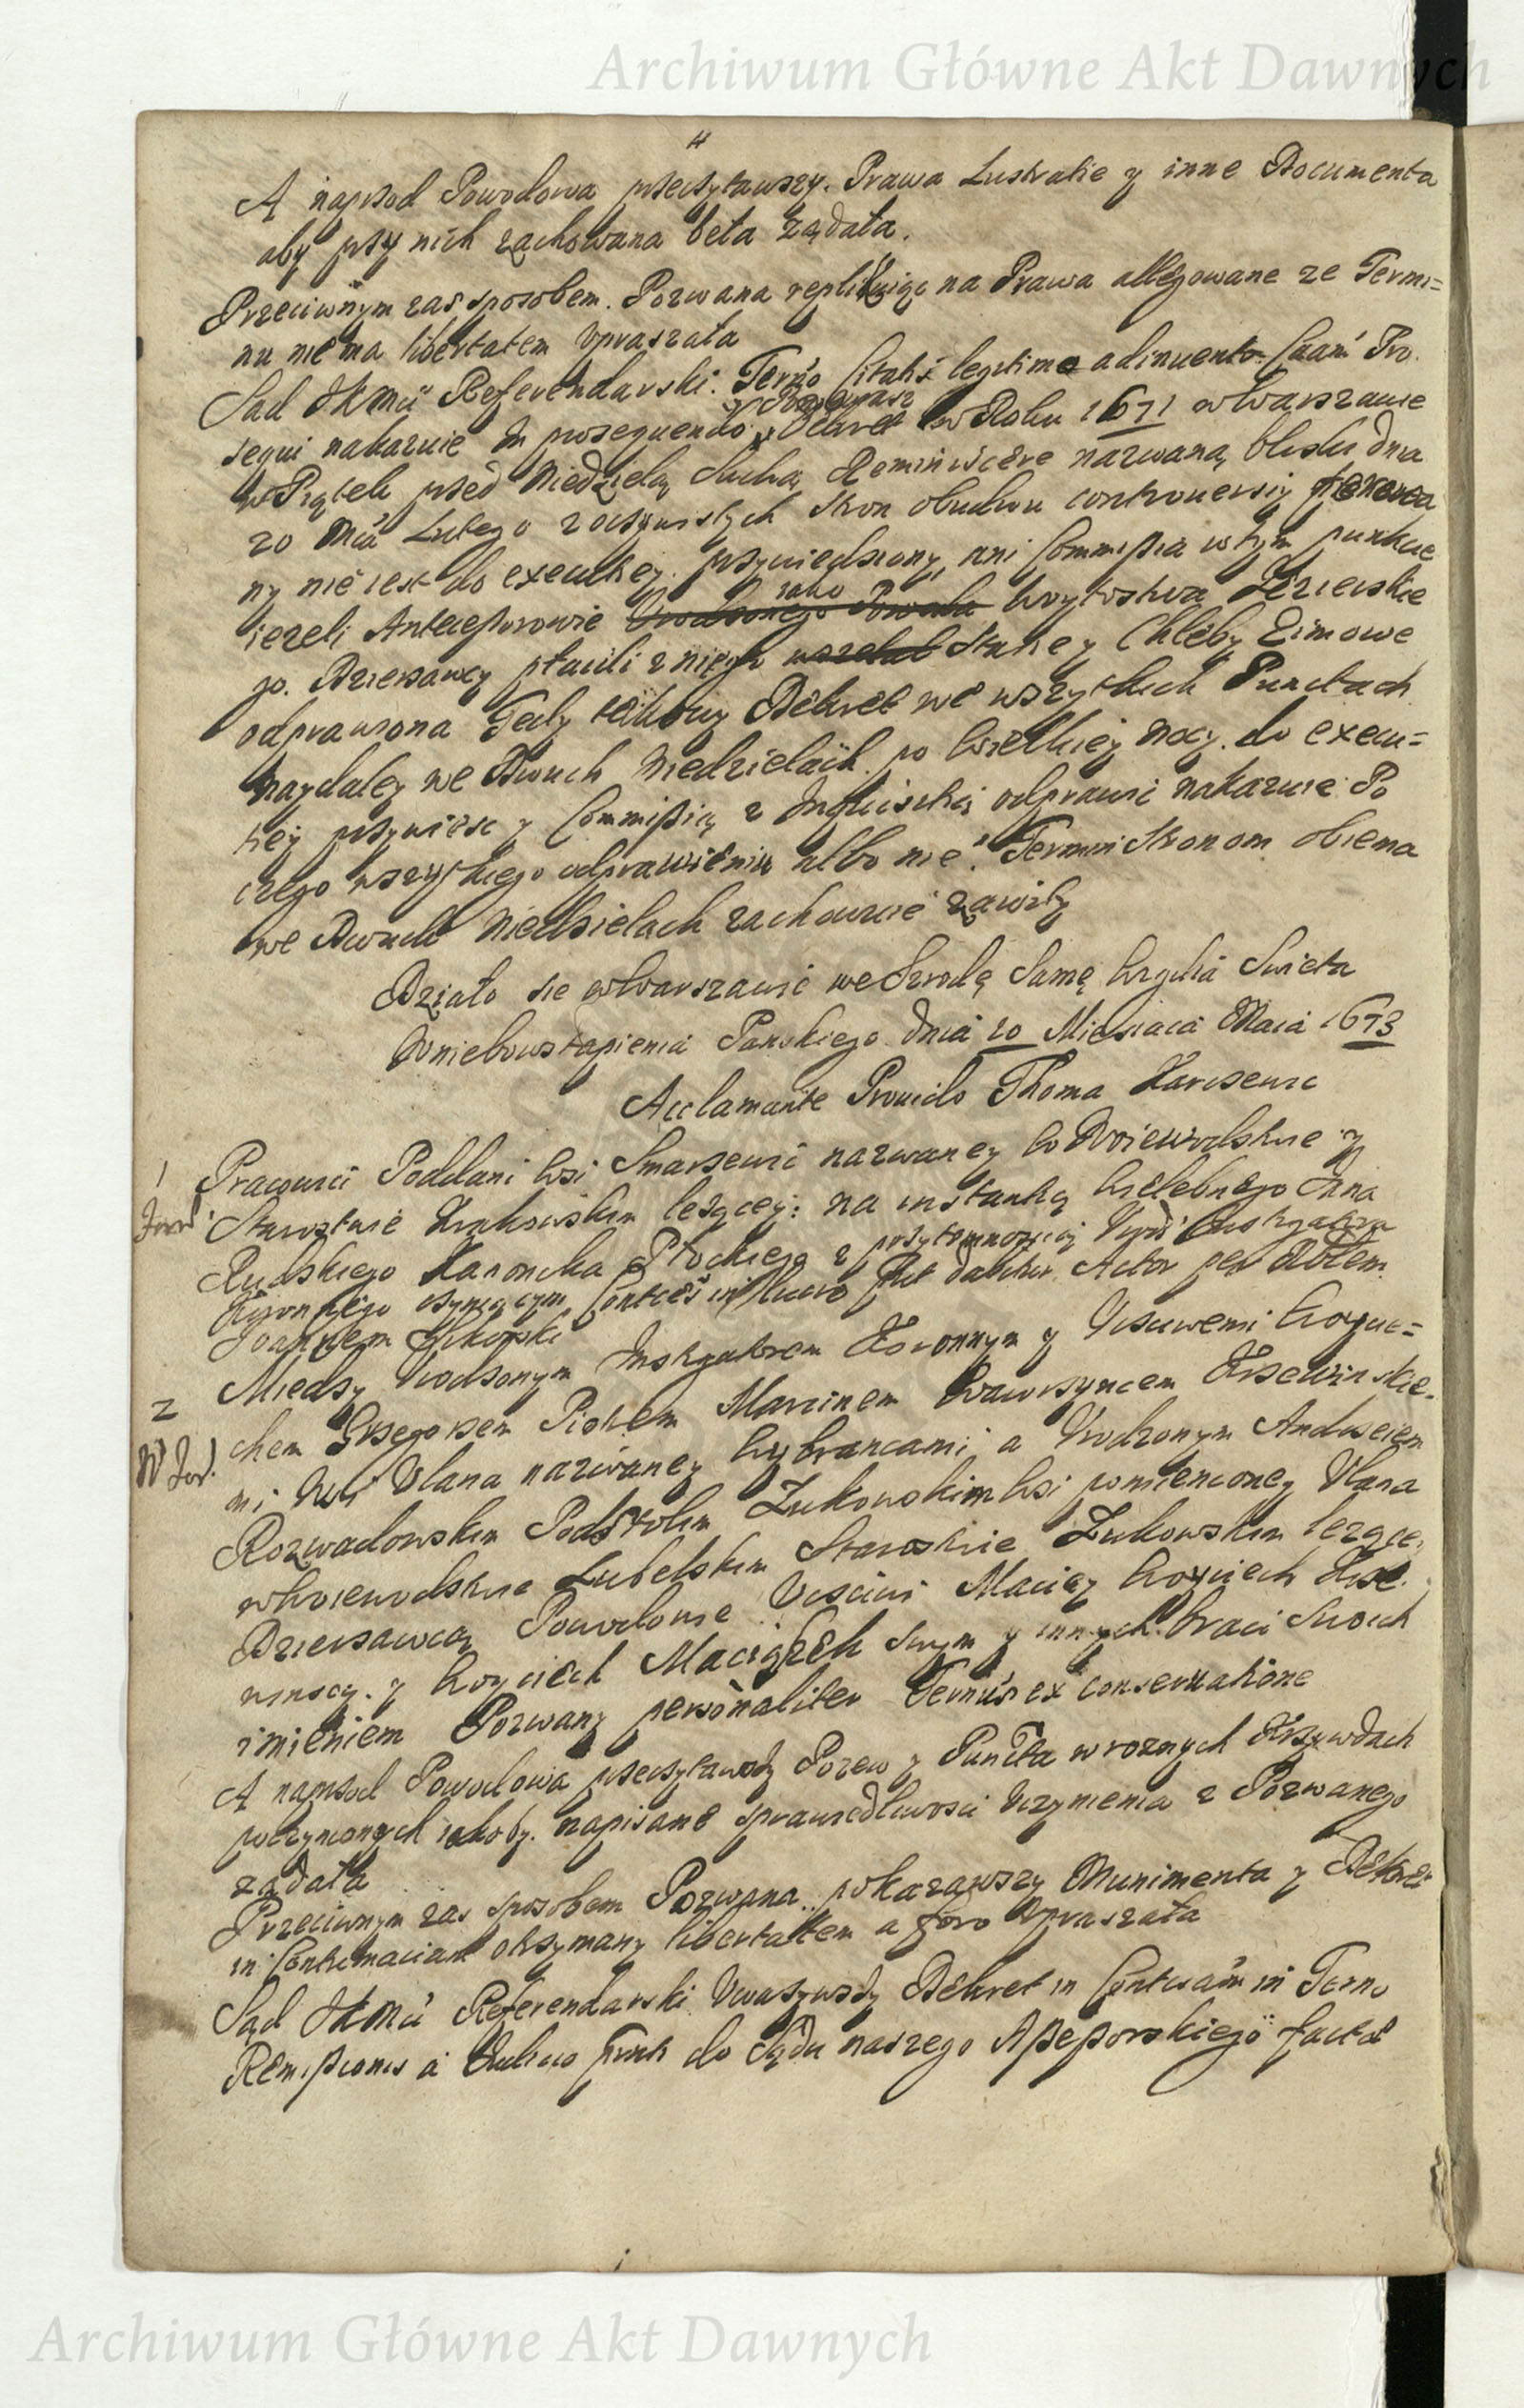 Archiwum Główne Akt Dawnych
A naprzod Powodowa przeczytawszy. Prawa Lustratie y inne Documenta
aby przy nich zachowana beła ządała.
Przeciwnym zas sposobem. Pozwana replikuiąc na Prawa allegowane ze Termi=
nu nie ma libertatem vpraszała
Sąd JKMci Referendarski. Citatis legitime adinuento Pro
sequi nakazuie In prosequendo Dekret w Roku 1671 w Warszawie
w Piątek przed Niedzielą Suchą Reminiscere nazwaną blisko dnia
20 Mca Lutego z oczywistych stron obudwu controuersiy
ny nie iest do exeucyey przywiedziony, ani Commissia w tym punkcie
iezeli Antecessorowie iako Woytostwa
go. Dzierzawcy płacili z niego Stacye y Chleby Zimowe
odprawiona Tedy takowy Dekret we wszytkich Punctach
naydaley we Dwuch Niedzielach po Wielkiey nocy. do execu=
tiey przywiesc y Commissią z Inquisitią odprawic nakazuie Po
czego wszytkiego odprawieniu albo nie. Termin stronom obiema
we Dwuch Niedzielach zachowuie zawity
Działo sie w Warszawie we Srzodę Samę Wigilia Swieta
Wniebowstąpienia Panskiego dnia 10 Miesiaca Maia 1673
Acclamante Prouido Thoma
1 Pracowici Poddani Wsi Smarzewic nazwaney w Woiewodstwie y
Starostwie lezącey: na instantią Wielebnego Jana
Rudskiego Kanonika Płockiego z przytomnoscią Instygatora
Koronnego czyniącym, Actor per
Joannem
2 Między Vrodzonym Instygatorem Koronnym y Vczciwemi Woycie=
chem Grzegorzem Piotrem Marcinem Wawrzyncem Krzewinskie
mi Wsi Vlana nazwaney Wybrancami, a Vrodzonym Andrzeiem
Rozwadowskim Podstolim Zukowskim Wsi pomienioney Vlana
w Woiewodstwie Lubelskim Starostwie Łukowskim lezącey
Dzierzawcą Powodowie Vczciwi Maciey Woyciech Krze
winscy. y Woyciech Maciążek swym y innych braci swoich
imieniem Pozwany personaliter Terminus ex conseruatione
A naprzod Powodowa przeczytawszy Pozew y Puncta w roznych Krzywdach
poczynionych iakoby. napisane sprawiedliwosci vczynienia z Pozwanego
ządała
Przeciwnym zas sposobem Pozwana pokazawszy Munimenta y Dekret
in Contumaciam otrzymany libertatem a foro vpraszała
Sąd JKMci Referendarski Vwazywszy Dekret in in Termino
Remissionis a do Sądu naszego Assessorskiego
Archiwum Główne Akt Dawnych